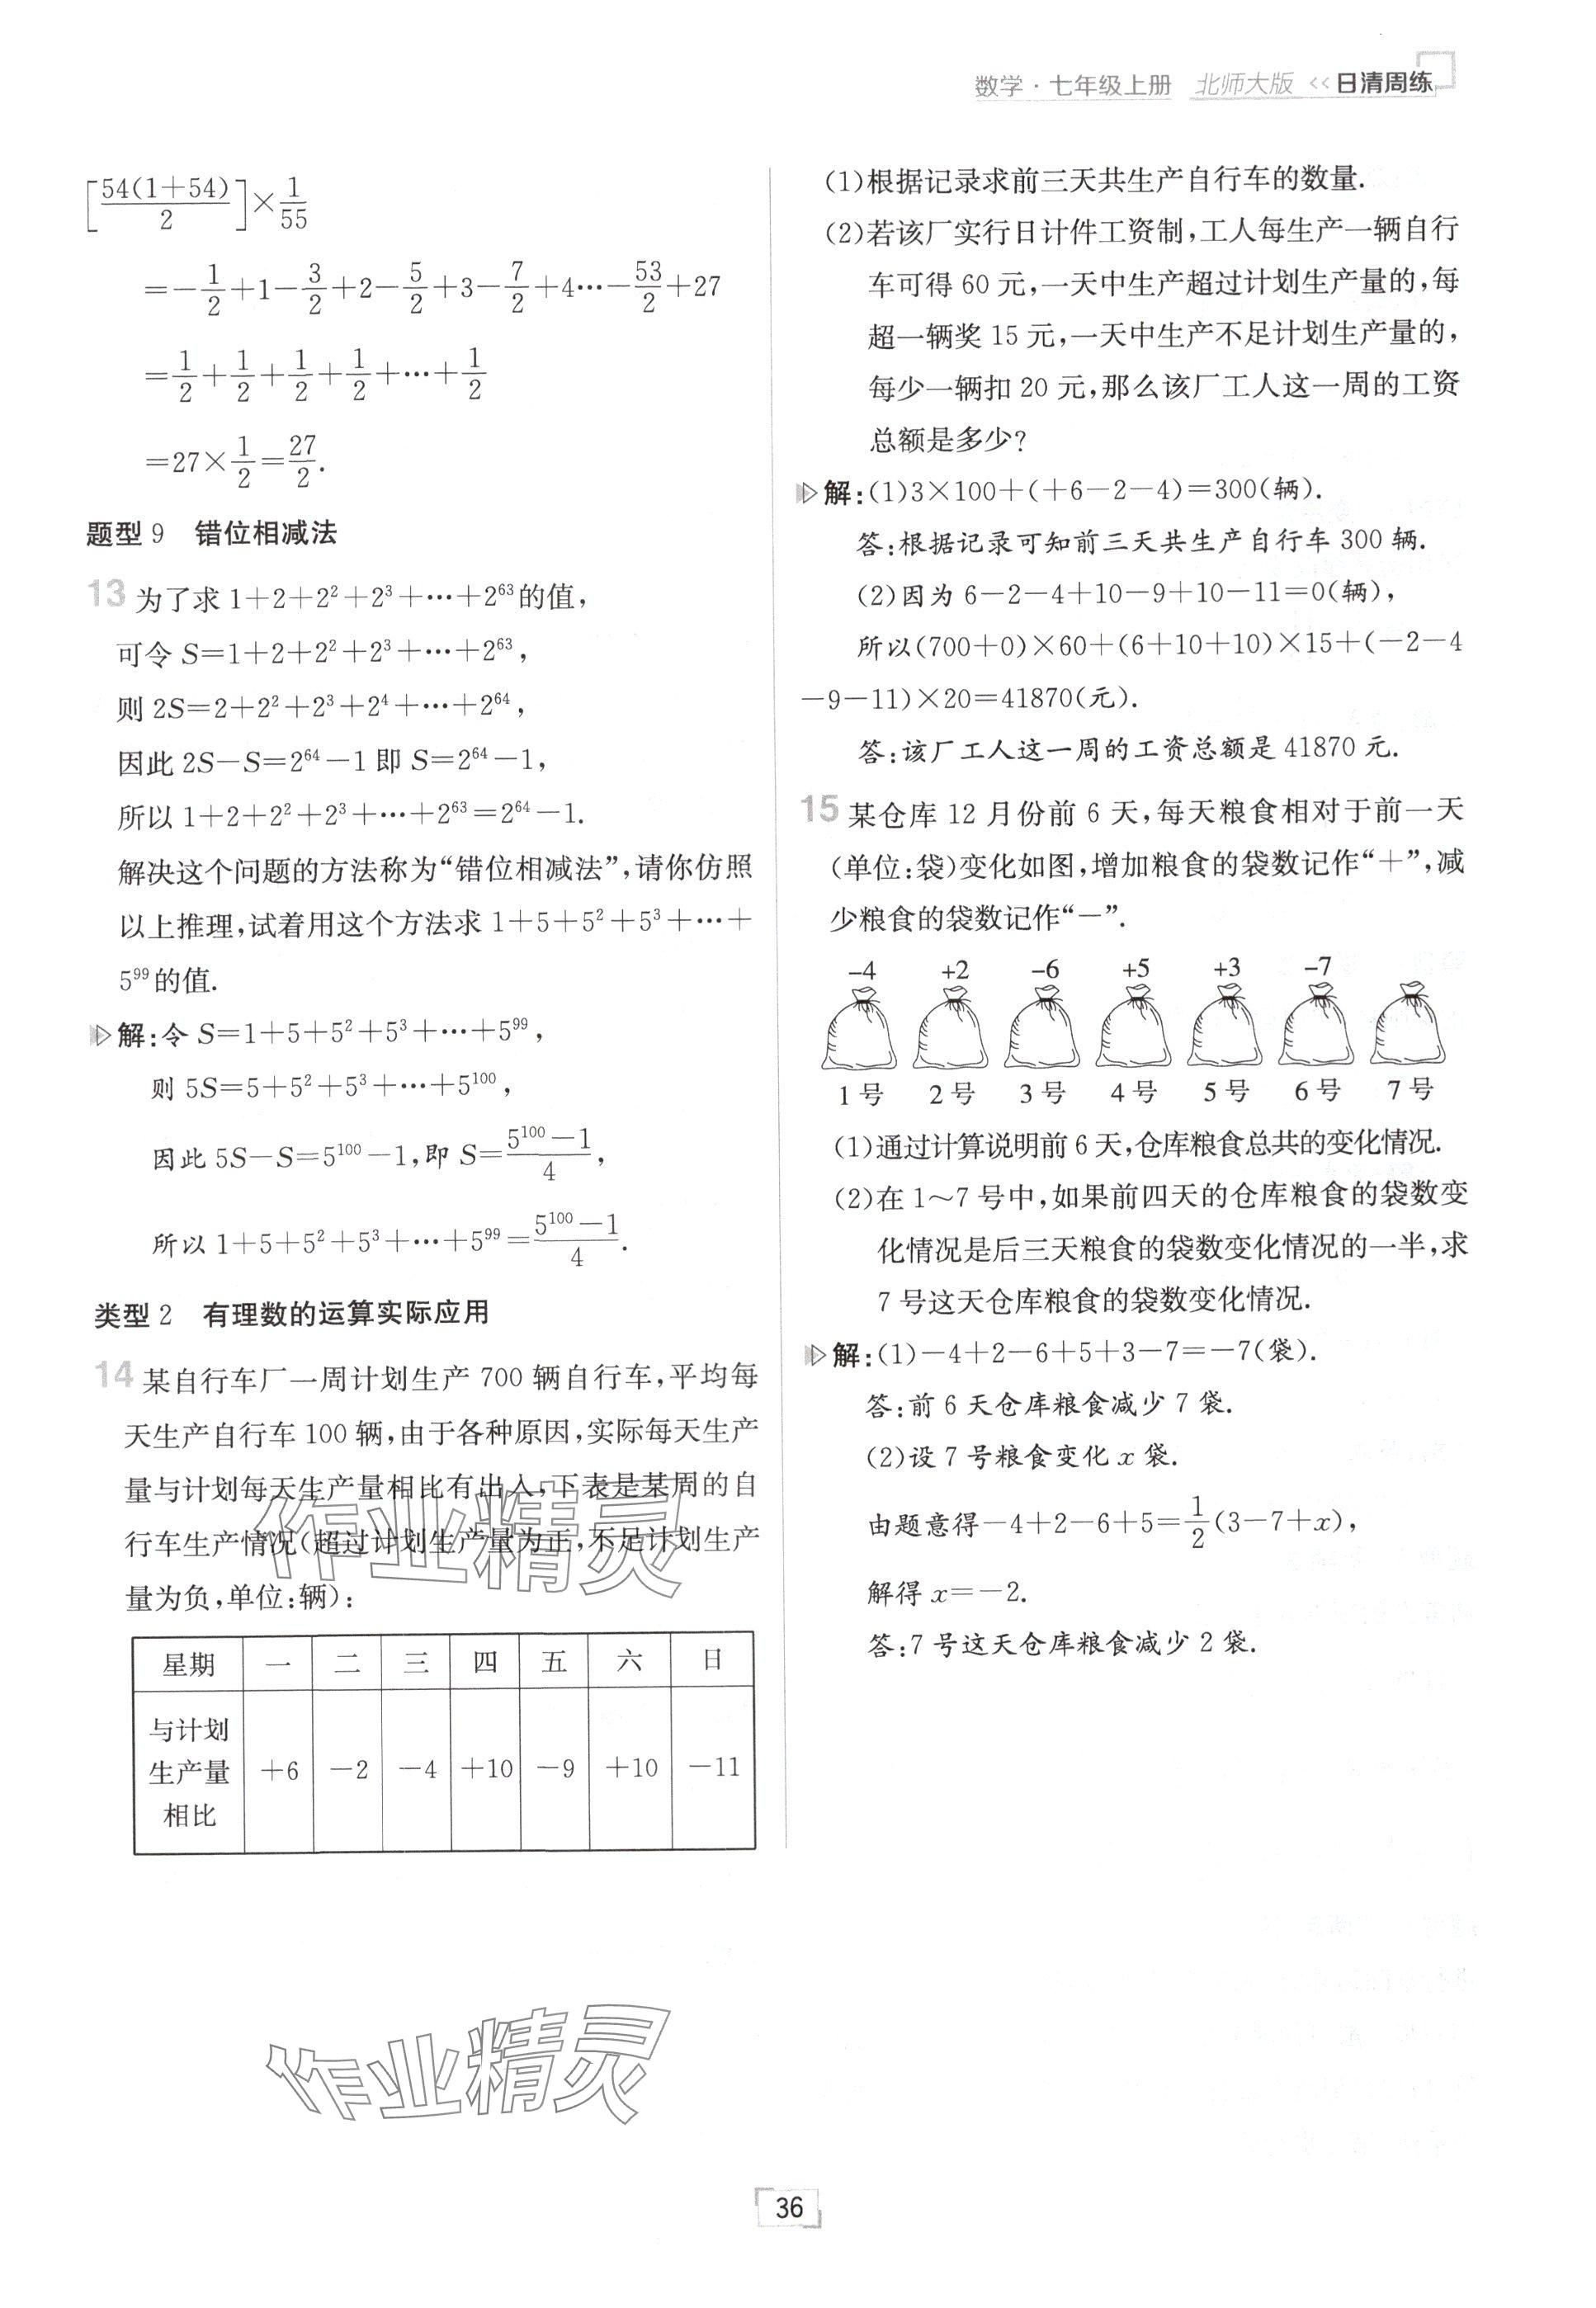 数学·七年级上册 北师大版 << 日清周练
[54(1+54)/2]×1/55
=-1/2+1-3/2+2-5/2+3-7/2+4…-53/2+27
=1/2+1/2+1/2+1/2+…+1/2
=27×1/2=27/2.
题型 9 错位相减法
13 为了求 1+2+2²+2³+…+2⁶³的值,
可令 S=1+2+2²+2³+…+2⁶³,
则 2S=2+2²+2³+2⁴+…+2⁶⁴,
因此 2S-S=2⁶⁴-1 即 S=2⁶⁴-1,
所以 1+2+2²+2³+…+2⁶³=2⁶⁴-1.
解决这个问题的方法称为“错位相减法”,请你仿照
以上推理,试着用这个方法求 1+5+5²+5³+…+
5⁹⁹的值.
解:令 S=1+5+5²+5³+…+5⁹⁹,
则 5S=5+5²+5³+…+5¹⁰⁰,
因此 5S-S=5¹⁰⁰-1,即 S=(5¹⁰⁰-1)/4,
所以 1+5+5²+5³+…+5⁹⁹=(5¹⁰⁰-1)/4.
类型 2 有理数的运算实际应用
14 某自行车厂一周计划生产 700 辆自行车,平均每
天生产自行车 100 辆,由于各种原因,实际每天生产
量与计划每天生产量相比有出入,下表是某周的自
行车生产情况(超过计划生产量为正,不足计划生产
量为负,单位:辆):
星期 一 二 三 四 五 六 日
与计划
生产量
相比
+6 -2 -4 +10 -9 +10 -11
(1)根据记录求前三天共生产自行车的数量.
(2)若该厂实行日计件工资制,工人每生产一辆自行
车可得 60 元,一天中生产超过计划生产量的,每
超一辆奖 15 元,一天中生产不足计划生产量的,
每少一辆扣 20 元,那么该厂工人这一周的工资
总额是多少?
解:(1)3×100+(+6-2-4)=300(辆).
答:根据记录可知前三天共生产自行车 300 辆.
(2)因为 6-2-4+10-9+10-11=0(辆),
所以(700+0)×60+(6+10+10)×15+(-2-4
-9-11)×20=41870(元).
答:该厂工人这一周的工资总额是 41870 元.
15 某仓库 12 月份前 6 天,每天粮食相对于前一天
(单位:袋)变化如图,增加粮食的袋数记作“+”,减
少粮食的袋数记作“-”.
-4 +2 -6 +5 +3 -7
1号 2号 3号 4号 5号 6号 7号
(1)通过计算说明前 6 天,仓库粮食总共的变化情况.
(2)在 1~7 号中,如果前四天的仓库粮食的袋数变
化情况是后三天粮食的袋数变化情况的一半,求
7 号这天仓库粮食的袋数变化情况.
解:(1)-4+2-6+5+3-7=-7(袋).
答:前 6 天仓库粮食减少 7 袋.
(2)设 7 号粮食变化 x 袋.
由题意得-4+2-6+5=1/2(3-7+x),
解得 x=-2.
答:7 号这天仓库粮食减少 2 袋.
作业精灵
作业精灵
36